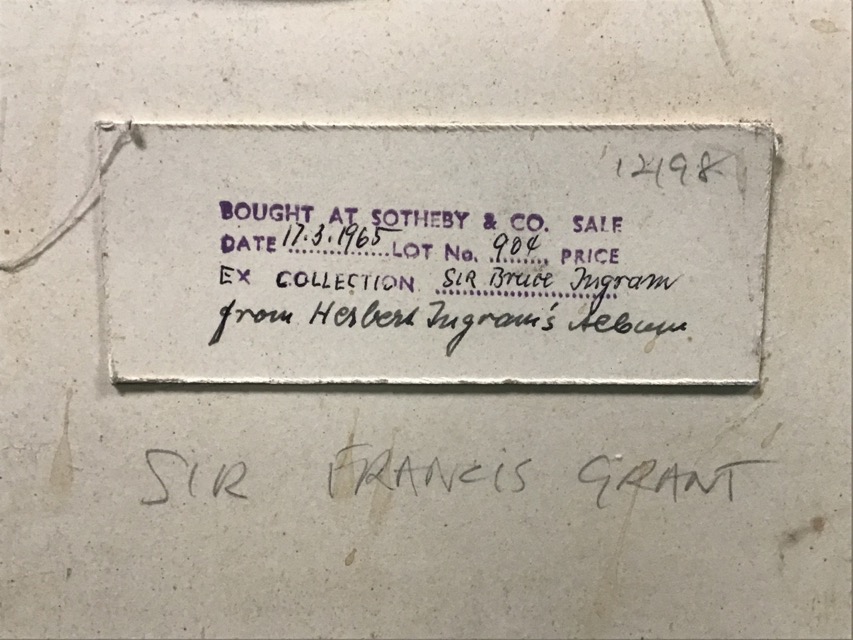 12498
BOUGHT AT SOTHEBY & CO. SALE
DATE 17.3.1965 LOT No. 904 PRICE
EX COLLECTION SIR Bruce Ingram
from Herbert Ingram's Album
SIR FRANCIS GRANT